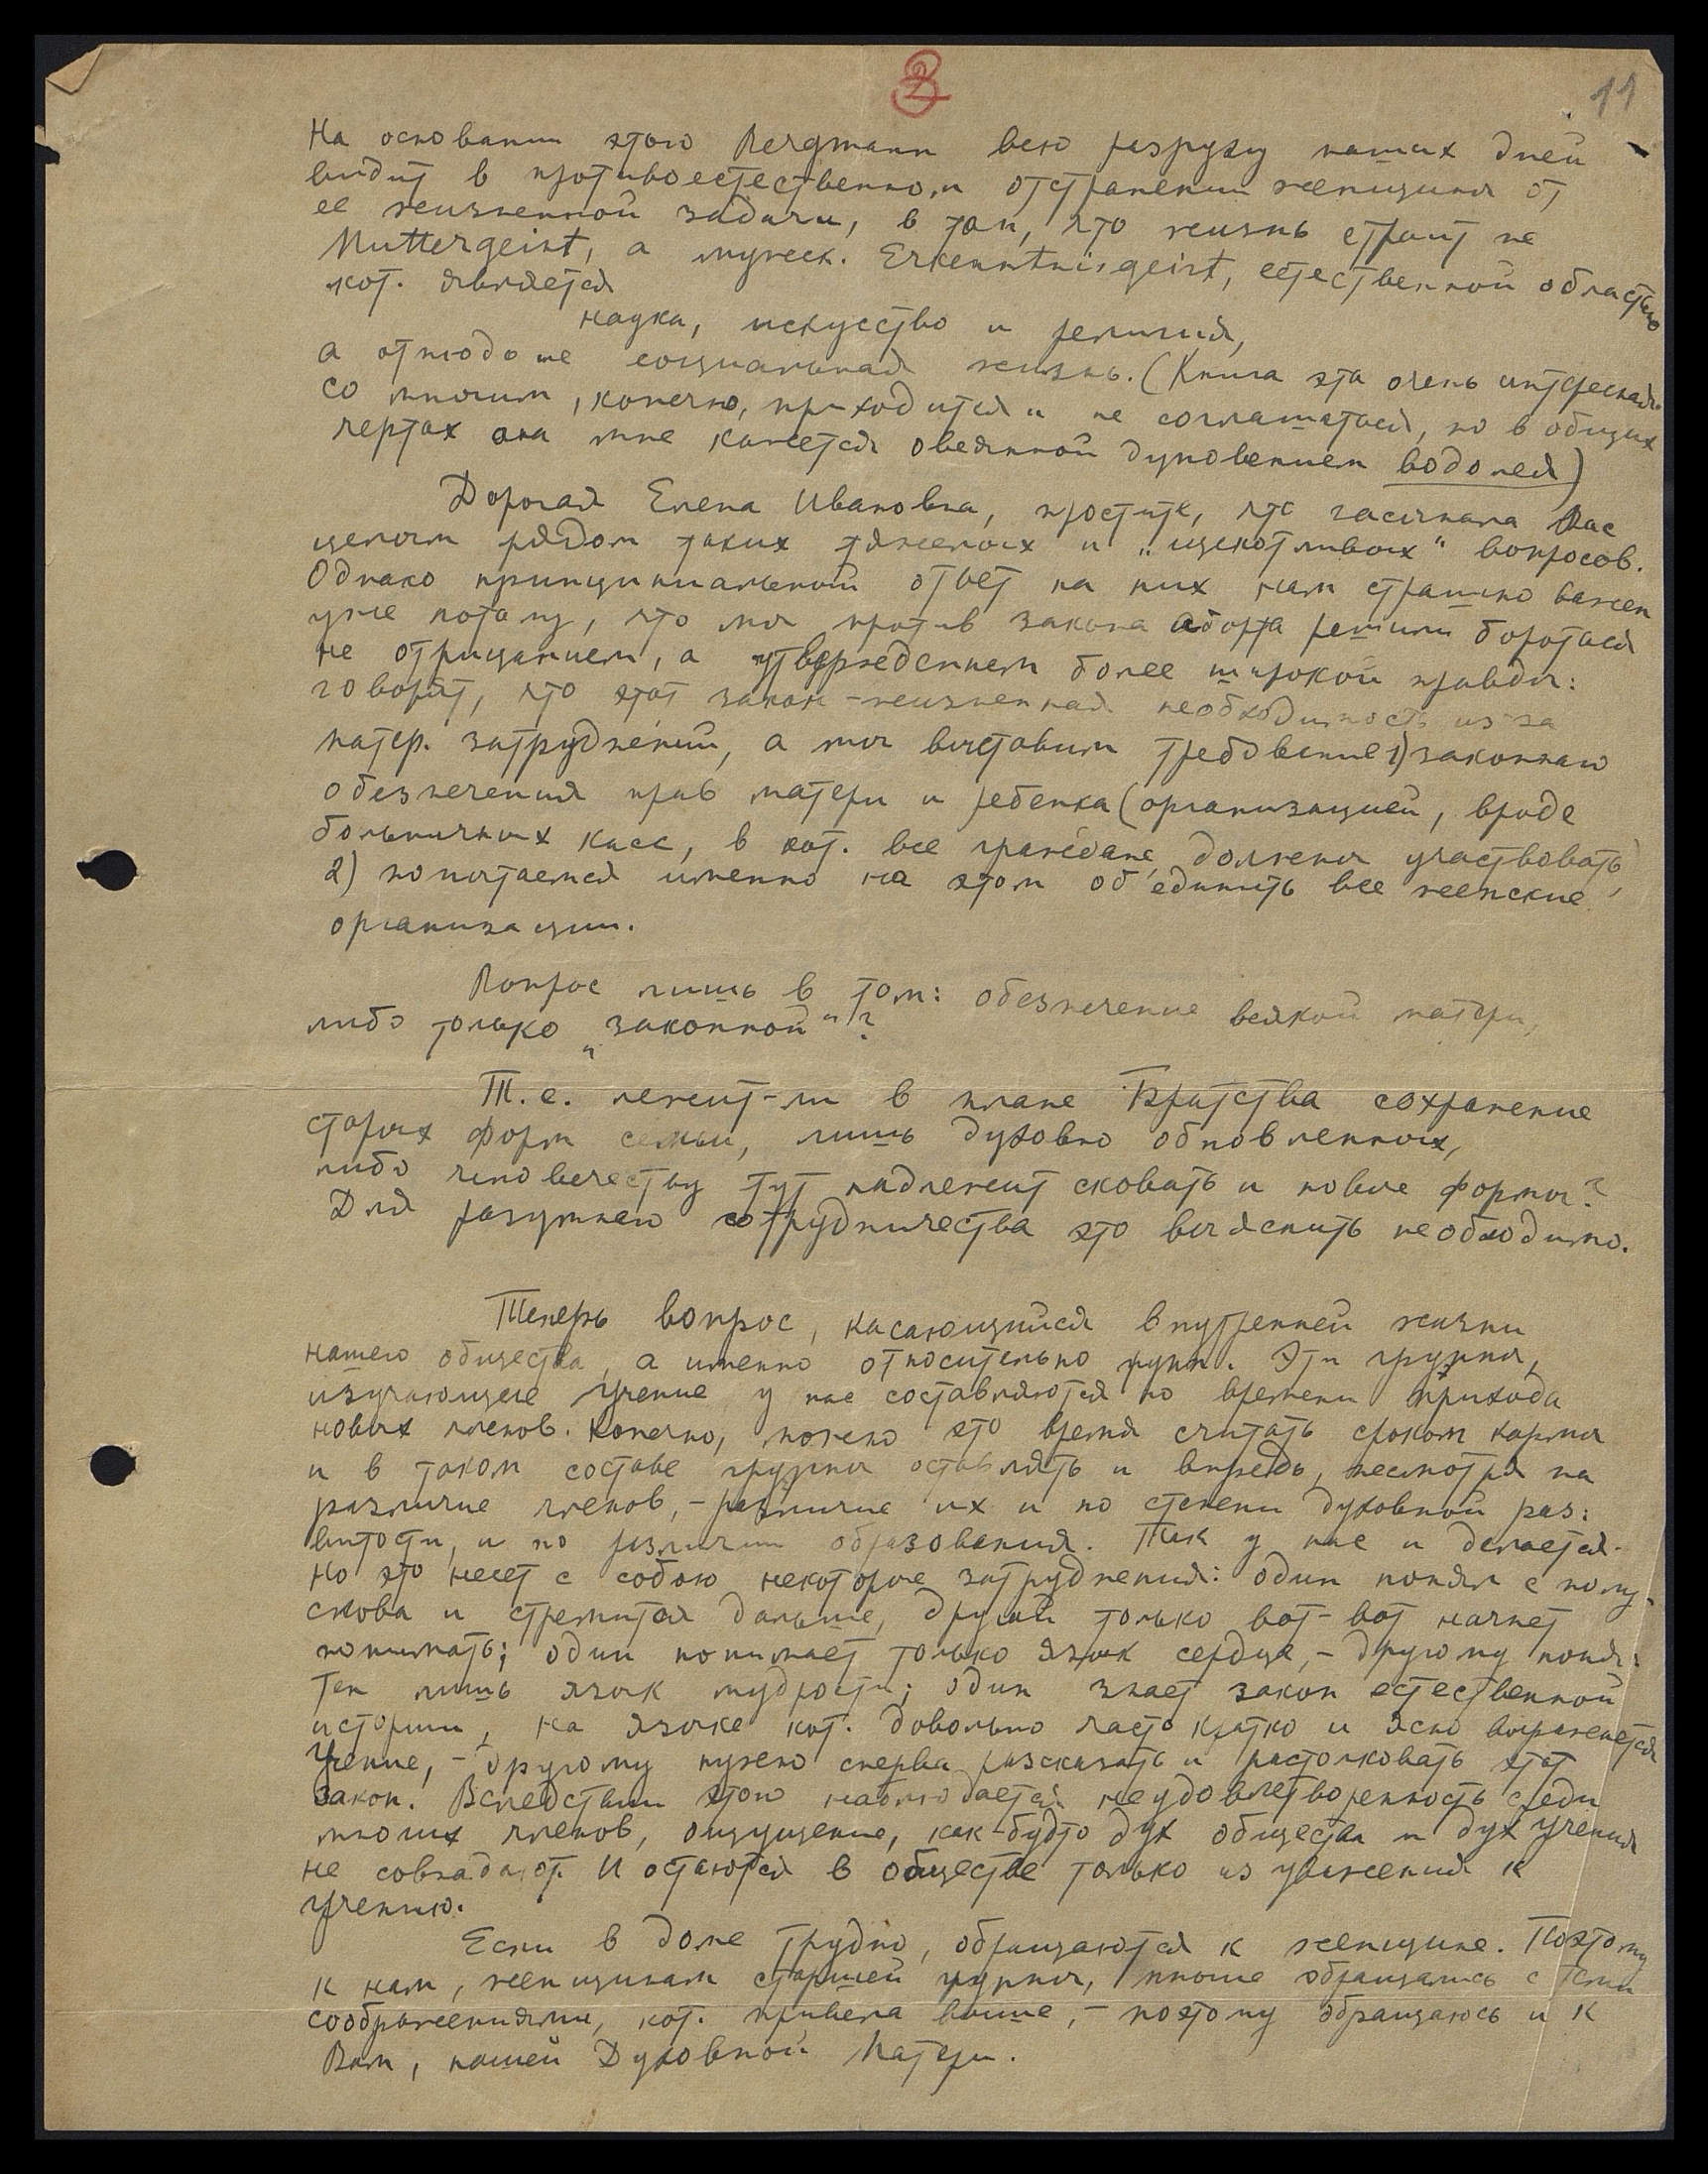 2
11
На основании этого Bergmann всю разруху наших дней
видит в противоестественном отстранении женщины от
ее жизненной задачи, в том, что жизнь строит не
Muttergeist, а мужск. Erkenntnisgeist, естественной областью
кот. является
наука, искусство и религия,
а отнюдь не социальная жизнь. (Книга эта очень интересная.
Со многим, конечно, приходится и не соглашаться, но в общих
чертах она мне кажется овеянной дуновением водолея)
Дорогая Елена Ивановна, простите, что засыпала Вас
целым рядом таких тяжелых и „щекотливых" вопросов.
Однако принципиальный ответ на них нам страшно важен
уже потому, что мы против закона аборта решили бороться
не отрицанием, а утверждением более широкой правды:
говорят, что этот закон - жизненная необходимость из за
матер. затруднений, а мы выставим требование 1) законного
обезпечения прав матери и ребенка (организацией, вроде
больничных касс, в кот. все граждане должны участвовать)
2) попытаемся именно на этом об'единить все женские
организации.
Вопрос лишь в том: обезпечение всякой матери,
либо только „законной"?
Т.е. лежит-ли в плане Братства сохранение
старых форм семьи, лишь духовно обновленных,
либо человечеству тут надлежит сковать и новые формы?
Для разумного сотрудничества это выяснить необходимо.
Теперь вопрос, касающийся внутренней жизни
нашего общества, а именно относительно групп. Эти группы,
изучающие Учение у нас составляются по времени прихода
новых членов. Конечно, можно это время считать сроком кармы
и в таком составе группы оставлять и впредь, несмотря на
различие членов, - различие их и по степени духовной раз:
витости, и по различии образования. Так у нас и делается.
Но это несет с собою некоторые затруднения: один понял с полу-
слова и стремится дальше, другой только вот-вот начнет
понимать; один понимает только язык сердца, - другому поня:
тен лишь язык мудрости; один знает закон естественной
истории, на языке кот. довольно часто кратко и ясно выражается
Учение, - другому нужно сперва рассказать и растолковать этот
закон. Вследствии этого наблюдается неудовлетворенность среди
многих членов, ощущение, как-будто дух общества и дух Учения
не совпадают. И остаются в обществе только из уважения к
Учению.
Если в доме трудно, обращаются к женщине. Поэтому
к нам, женщинам старшей группы, многие обращались с теми
соображениями, кот. привела выше, - поэтому обращаюсь и к
Вам, нашей Духовной Матери.